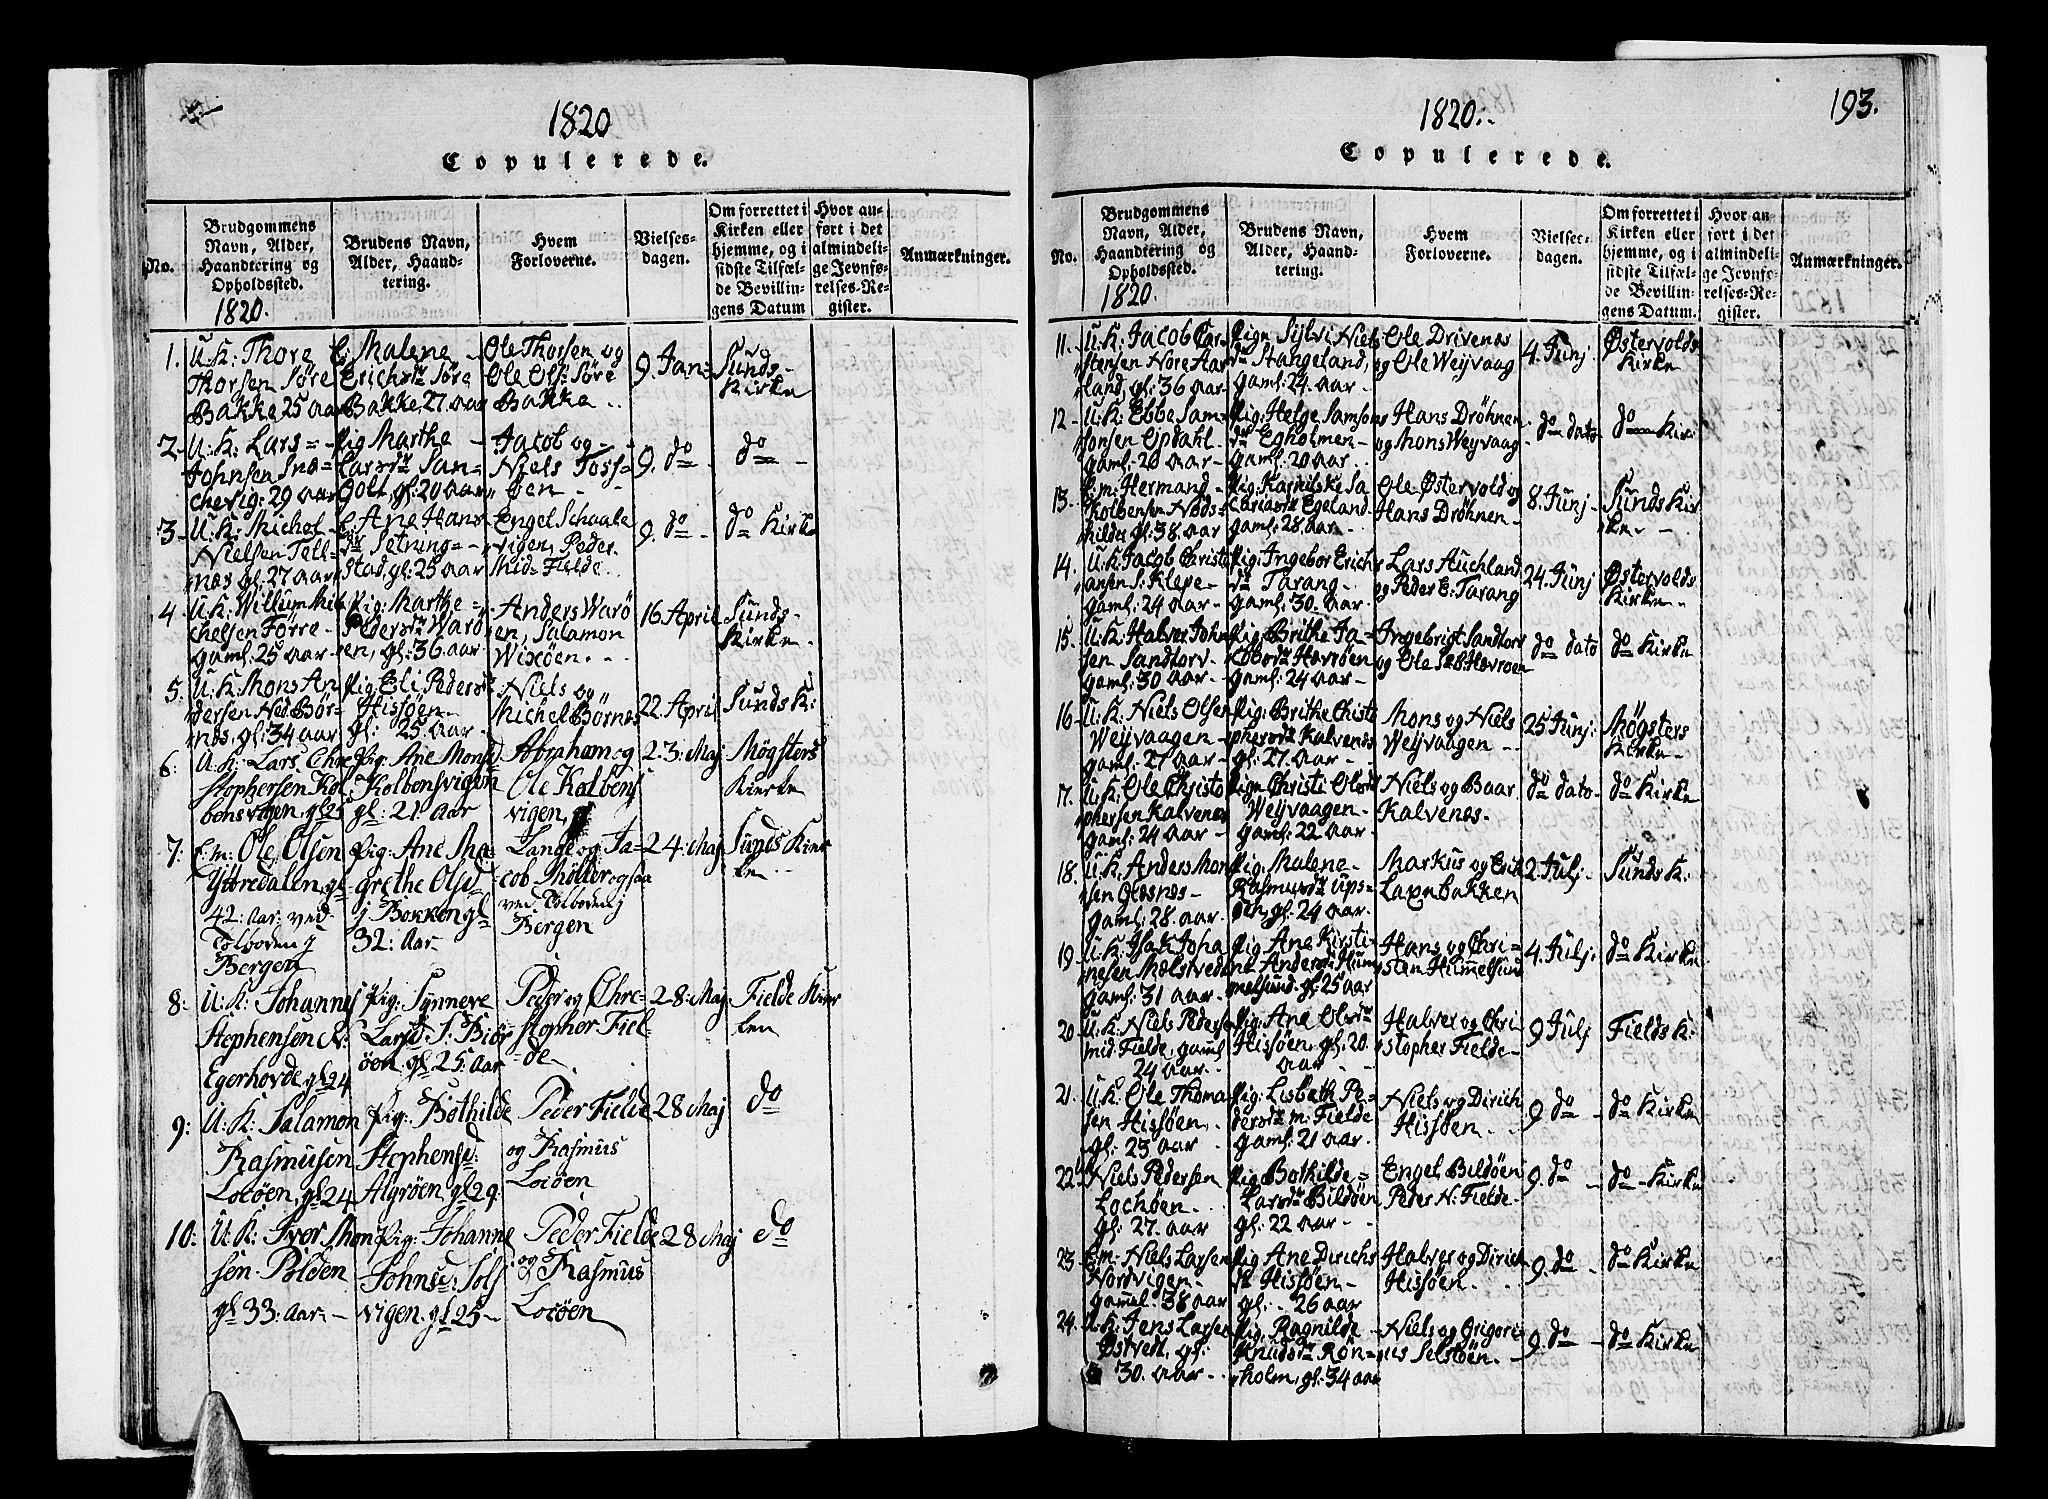 1820
Copulerede.
No.
Brudgommens Navn, Alder, Haandtering og Opholdssted.
Brudens Navn, Alder, Haandtering.
Hvem Forloverne.
Vielsesdagen.
Om forrettet i Kirken eller hjemme, og i sidste Tilfælde Bevillingens Datum
Hvor anført i det almindelige Jevnførelses-Register.
Anmærkninger.
1820.
1. U: K: Thore Thorsen Søre Bakke 25 aar
E: Malene Erichsdr Søre Bakke, 27 aar
Ole Thorsen og Ole Ols: Søre Bakke
9. Jan=
Sunds Kirke
2. U: K: Lars Johnsen Snachevig: 29 aar
Pig Marthe Larsdr Golt, gl: 20 aar
Jacob og Niels Tøssøen
9. do
do
3. U: K: Michel Nielsen Tellnæs gl: 27 aar
E: Ane Hansdr Setningstad, gl: 25 aar
Engel Schaalevigen, Peder Mid=Fielde
9. do
do Kirke
4. U: K: Willum Michelsen Førre gaml: 25 aar
Pig: Marthe Pedersdr Warøen, gl: 36 aar
Anders Warøen, Salamon Wixøen
16 April
Sunds Kirke
5. U: K: Mons Andersen Ned. Børnæs, gl: 34 aar
Pig: Eli Pedersdr Hissøen gl: 25 aar
Niels og Michel Børnæs
22. April
Sunds K:
6: U: K: Lars Chrestophersen Kolbensvigen, gl 25
Pig: Ane Monsd Kolbensvigen gl: 21 Aar
Abraham og Ole Kolbensvigen
23: Maj
Møgsters Kierke
7: E: m: Ole Olsen Yttredalen gl 42: Aar: ved Tolboden j Bergen
Pig: Ane Magrethe Olsd j Bokken gl 32: Aar
Lange og Jacob Møller ogsaa ved Tolboden j Bergen
24: Maj
Sunds Kierken
8: U: K: Johannes Stephensen N: Egerhovde gl 24
Pig: Synneve Larsd S: Biorøen gl 25: Aar
Peder og Chrestopher Fielde
28: Maj
Fielde Kierken
9: U: K: Salamon Rasmusen Locøen, gl 24
Pig: Bothilde Stephensd: Algrøen, gl 29.
Peder Fielde og Rasmus Locøen
28 Maj
do
10: U: K: Iver Monsen Polden gl 33: Aar
Pig: Johanne Johnsd: Solsvigen. gl 25
Peder Fielde og Rasmus Locøen
28 Maj
do
1820.
193.
Copulerede.
No.
Brudgommens Navn, Alder, Haandtering og Opholdssted.
Brudens Navn, Alder, Haandtering.
Hvem Forloverne.
Vielsesdagen.
Om forrettet i Kirken eller hjemme, og i sidste Tilfælde Bevillingens Datum.
Hvor anført i det almindelige Jevnførelses-Register.
Anmærkninger.
1820.
11. U: K: Jacob Carstensen Nore Aarland, gl: 36 aar
Pige Sylvi Nielsdr Stangeland, gaml: 24. aar
Ole Drivenes og Ole Weyvaag
4. Junj
Østervolds Kirke
12. U: K: Ebbe Samsonsen Epdahl gaml: 20 aar
Pig: Helge Samsonsdr Egholmen gaml: 20 aar
Hans Drøhnen og Mons Weyvaag
do dato
do Kirk
13. E: m: Hermand Kolbensen Nodshildes gl: 38. aar
Pig: Karnilske Egeland gaml: 28. aar
Ole Østervold og Hans Drøhnen
8. Junj
Sunds Kirke
14. U: K: Jacob Christiansen S. Klepe gaml: 24 aar
Pig: Ingebor Erichsdr Tarang gaml: 30. aar
Lars Auchland og Peder E: Tarang
24. Junj
Østervolds Kirke
15. U: K: Halver Johnsen Sandtorv gaml: 30 aar
Pig: Brithe Jacobsdr Hævrøen gaml: 24 aar
Ingebrigt Sandtorv og Ole Hævrøen
do dato
do Kirke
16. U: K: Niels Olsen Weyvaagen gaml: 27 aar
Pig: Brithe Christophersdr Kalvenæs gl: 27. aar
Mons og Niels Weyvaagen
25 Junj:
Møgsters Kirke
17. U: K: Ole Christophersen Kalvenæs gaml: 24 aar
Pige Christi Olsdr Weyvaagen gaml: 22 aar
Niels og Baar Kalvenæs.
do dato
do Kirke
18. U: K: Anders Monsen Glesnæs gaml: 28. aar
Pig: Malene Rasmusdr gl: 24 aar
Markus og Erik Laxebakken
2. Julj
Sunds K:
19. U: K: Isak Johannesen Mælstveden gaml: 31 aar
Pig Ane Kirstine Andersdr Hummelsund. gl: 25 aar
Hans og Christen Himmelsund
4. Julj:
do Kirke
20. U: K: Niels Pedersen mid: Fielde, gaml 24 aar
Pig: Ane Olsdr Hissøen, gl: 20. aar
Halver og Christopher Fielde
9 Julj
Fields K:
21. U: K: Ole Thomasen Hissøen gl: 23 aar
Pig: Lisbeth Pedersdr m: Fielde gaml: 21 aar.
Niels og Dirich Hissøen
9. do
do Kirke
22. Niels Pedersen Lochøen gl: 27. aar
Pig Bothilde Larsdr Bildøen gl: 22 aar
Engel Bildøen Peder N: Fielde
9. do
do Kirke
23. E: m: Niels Larsen Nordvigen gammel: 38 aar
Pig Ane Dirichsdr Hissøen gl: 26 aar
Halver og Dirich Hissøen
9. do
do Kirke
24. U: K: Jens Larsen Østvedt, gl: 30. aar
Pig Ragnilde Knudsdr Rønholm, gl: 34 aar
Niels og Grigorius Selstøen
9. do
do Kirke